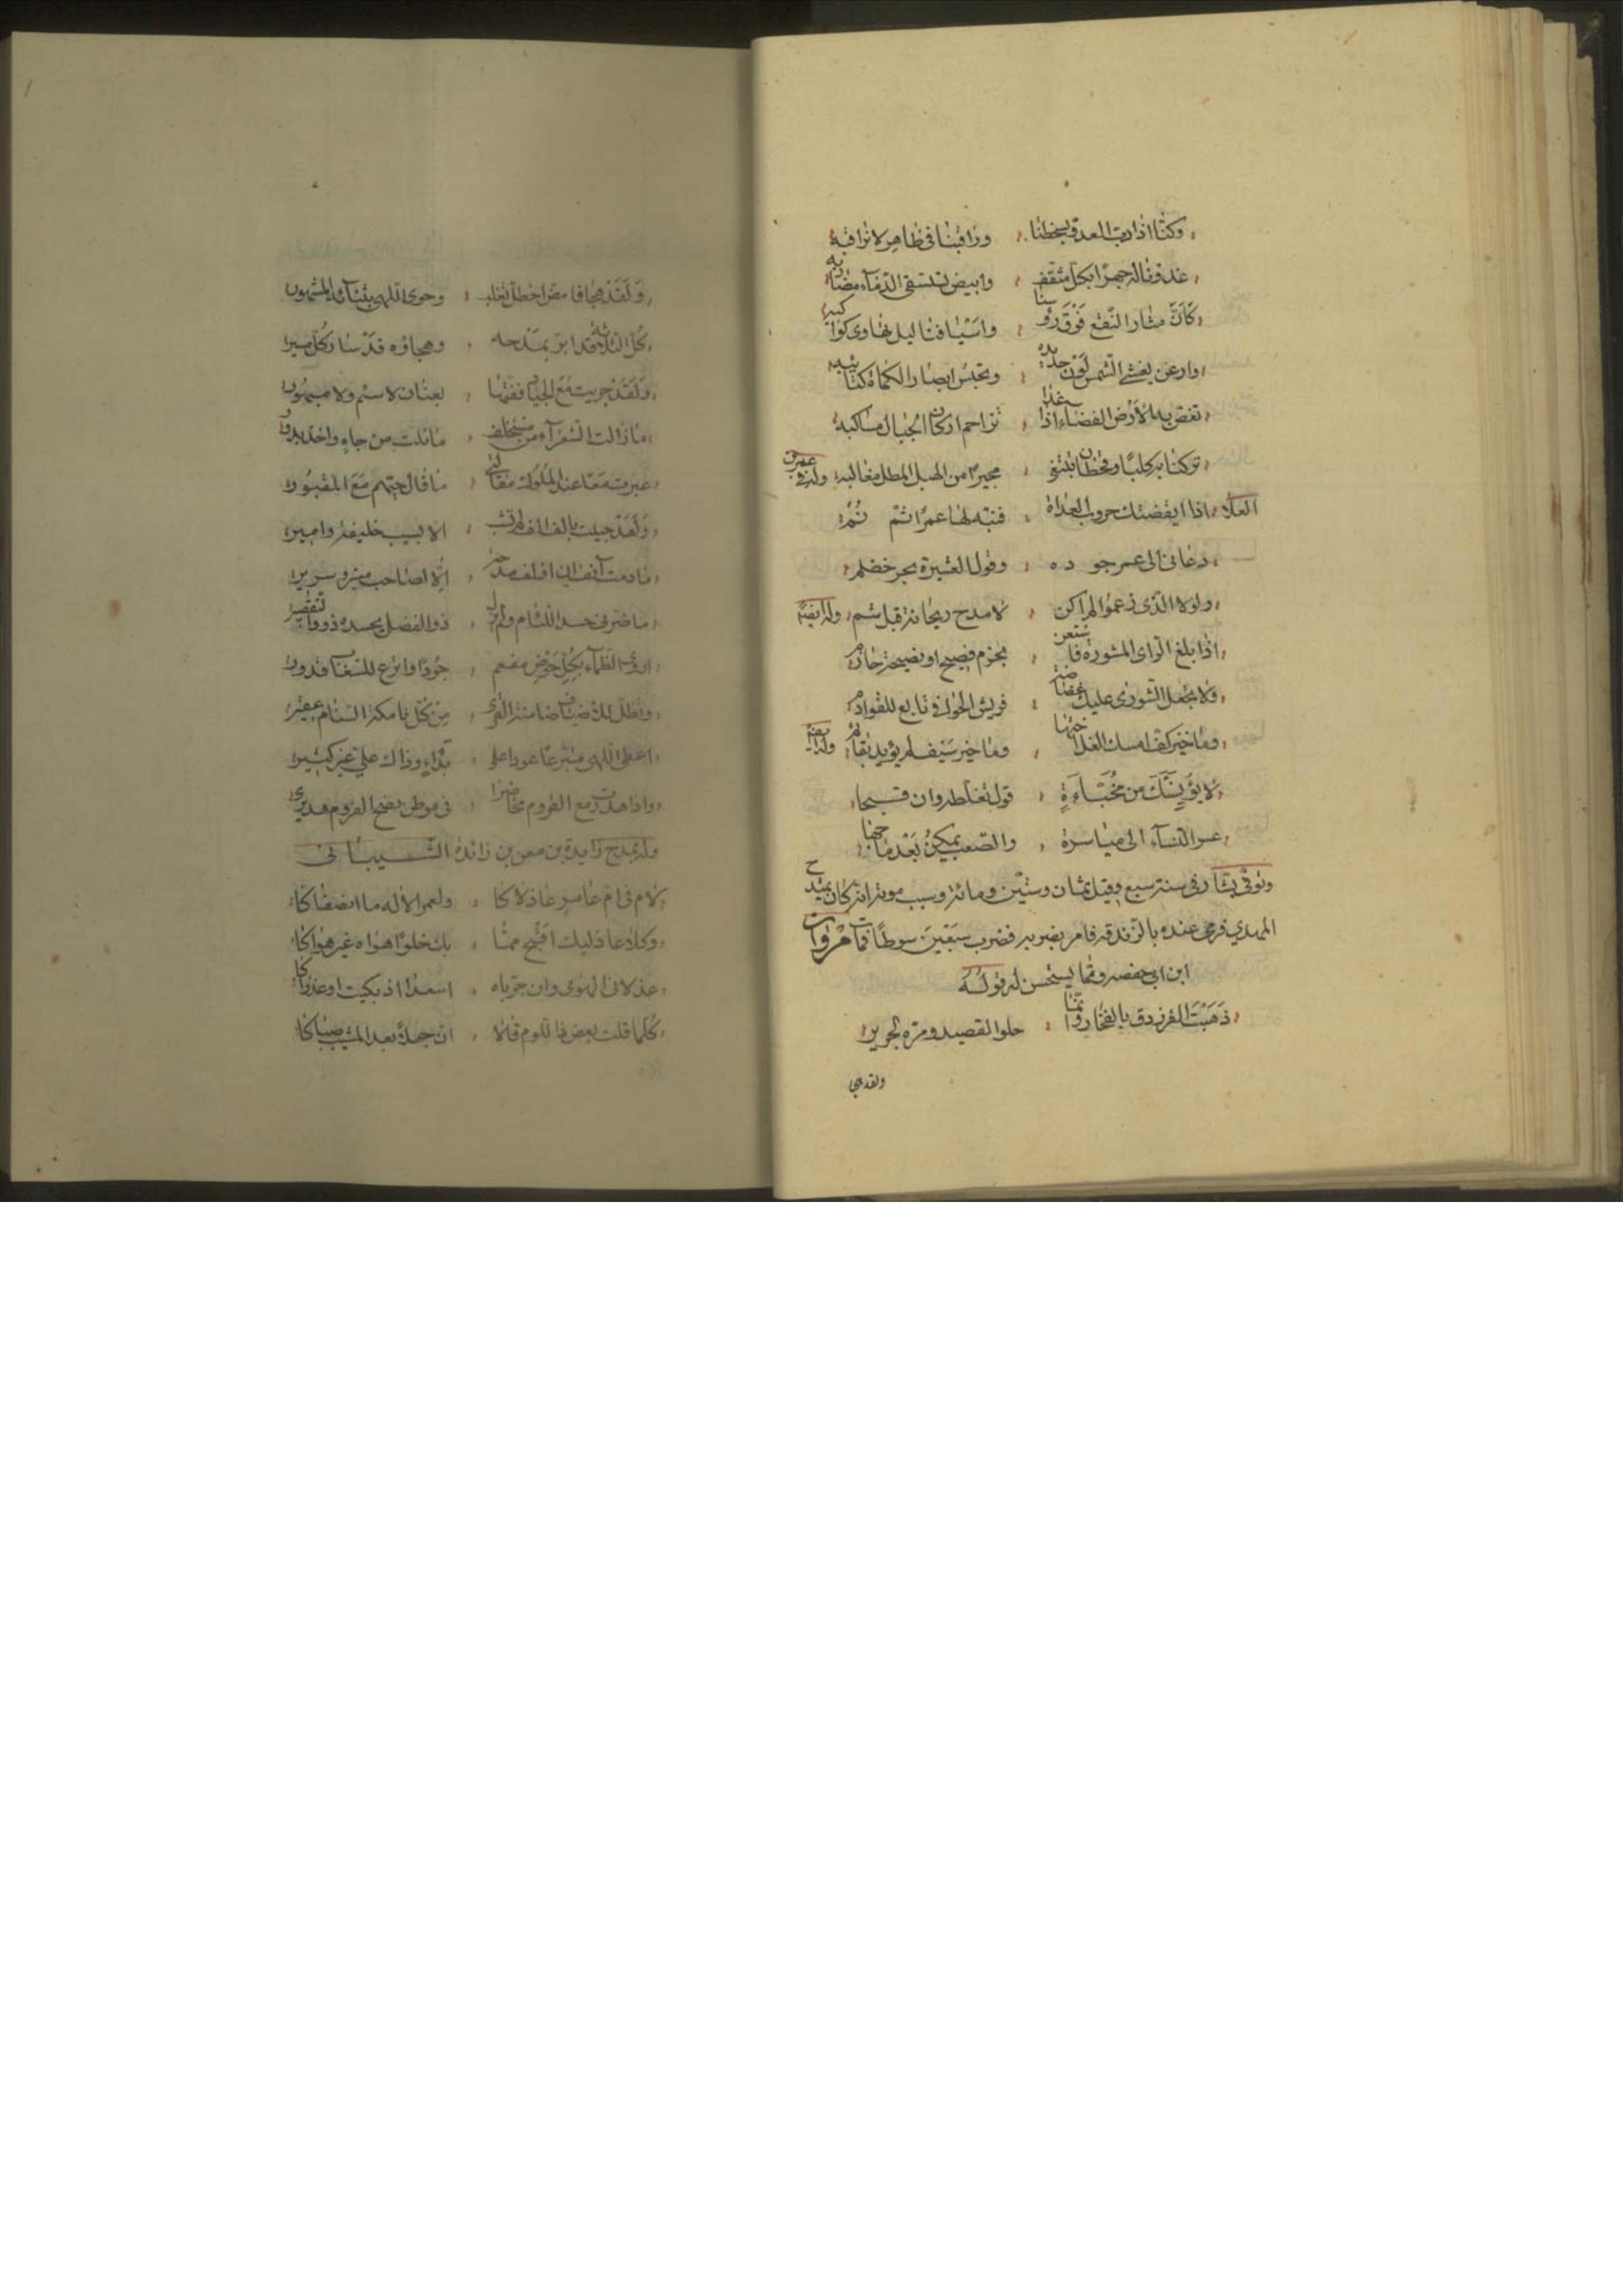 وكنّا اذا دبّ العدو بسخطنا وراقبنا فى ظاهر لا نراقبه
غدونا له جهرًا بكل مثقف وابيض تستسقى الدمآء مضاربه
كَانَّ مثار النّقع فَوْقَ رؤسنا واسْيافنا ليل تهاوى كواكبه
وارعن يغشى الشمس لَوْن حديده وتحبسُ ابصار الكماة كتائبه
تغص به الأرض الفضاء اذا غدا تزاحم اركان الجبال مناكبه
تركنا به كلبًا وقحطان تبتغى مجيرًا من الهبل المطل مغالبه وله فى عمر بن
العلا اذا ايقضتك حروب العداة فنبّه لها عمرًا ثم نُمْ
دعانى الى عمر جوده وقول العشيرة بحر خضم
ولولا الذى زعموا لم اكن لامدح ريحانة قبل شم وله ايضًا
اذا بلغ الراى المشورة فاستعن بحزم فصيح او نصيحة حازم
ولا تجعل الشورى عليك غضاضة فريش الخوافى تابع للقوادم
وما خير كف امسك الغل اختها وما خير سَيْف لم يؤيد بقائم وله ايضًا
لا يؤيسَنَّكَ من مُخَبّاءَةٍ قول تغلّطه وان قبحا
عسر النسآء الى مياسرة والصعب يمكنُ بَعْد ما جمحا
وتوفى بشار فى سنة سبع وقيل ثمان وستين ومائة وسبب موته انه كان يمتدح
المهدي فرمى عنده بالزندقة فامر بضربه فضرب سَبْعِينَ سوطًا فمات مرْوان
ابن ابى حفصه ومما يستحسن له قولـه
ذَهَبَ الفرزدق بالفخار وانما حلو القصيد ومرّه لجرير
ولقد هجى
وَلَقَدْ هجا فامضّ اخطل تغلب وحوى اللهى بثنآئه المشهور
كُل الثلاثة قد ابرّ بمدحه وهجاؤه قد سار كل مسير
ولقَدْ جريت مَعَ الجياد ففتها بعنان لا سئم ولا مبهُور
ما نالت الشعرآء من مستخلف ما نلت من جاهٍ واخذ بدور
عبرت معًا عند الملوك مقالتى ما قال حيّهم مَعَ المقبُور
وَلَقَدْ حبيت بالف الف لم تثب الا بسيب خليفة وامير
ما دمت آنف ان اؤلف مدحة الّا لصاحب منبر وسرير
ما ضرنى حسد اللئام ولم يزل ذو الفضل يحسده ذوو التقصير
اروى الظمآء بكُلِّ حَوْض مفعم جُودًا واترع للسغاب قدور
وتظل للاضياف ضامنة القرى مِنْ كُل تامكة السنام عقير
اعطى اللهى متبرعًا عودا على بَدْاءٍ وذاك علىّ غير كثير
واذا هدرت مع القروم محاضرًا فى موطن فضح القروم هديرى
وله يمدح زايدة بن معن بن زائدة الشـيبانى
لام فى ام عامر عاذلاكا ولعمر الاله ما انصفاكا
وكلا عاذليك اصْبح مما بك خلوًا هواه غير هواكا
عذلا فى الهوى وان جرّباه اسعدا اذ بكيت او عذراكا
كُلما قلت بعض ذا اللوم قالا ان جهلا بعد المشيب صباكا